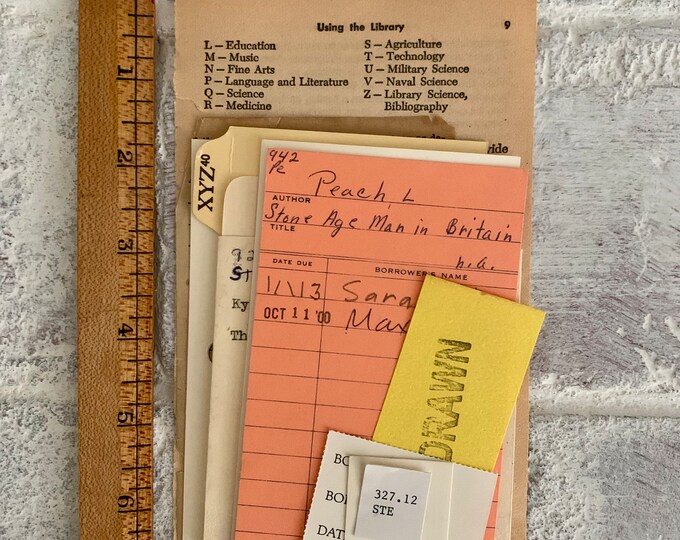 Using the Library 9
L — Education
M — Music
N — Fine Arts
P — Language and Literature
Q — Science
R — Medicine
S — Agriculture
T — Technology
U — Military Science
V — Naval Science
Z — Library Science,
Bibliography
XYZ40
442
Pe
Peach, L
AUTHOR
Stone Age Man in Britain
TITLE
n.a.
DATE DUE BORROWER'S NAME
11\13 Sara
OCT 11 '00 Max
Ky
Th
DRAWN
327.12
STE
DAT
1
2
3
4
5